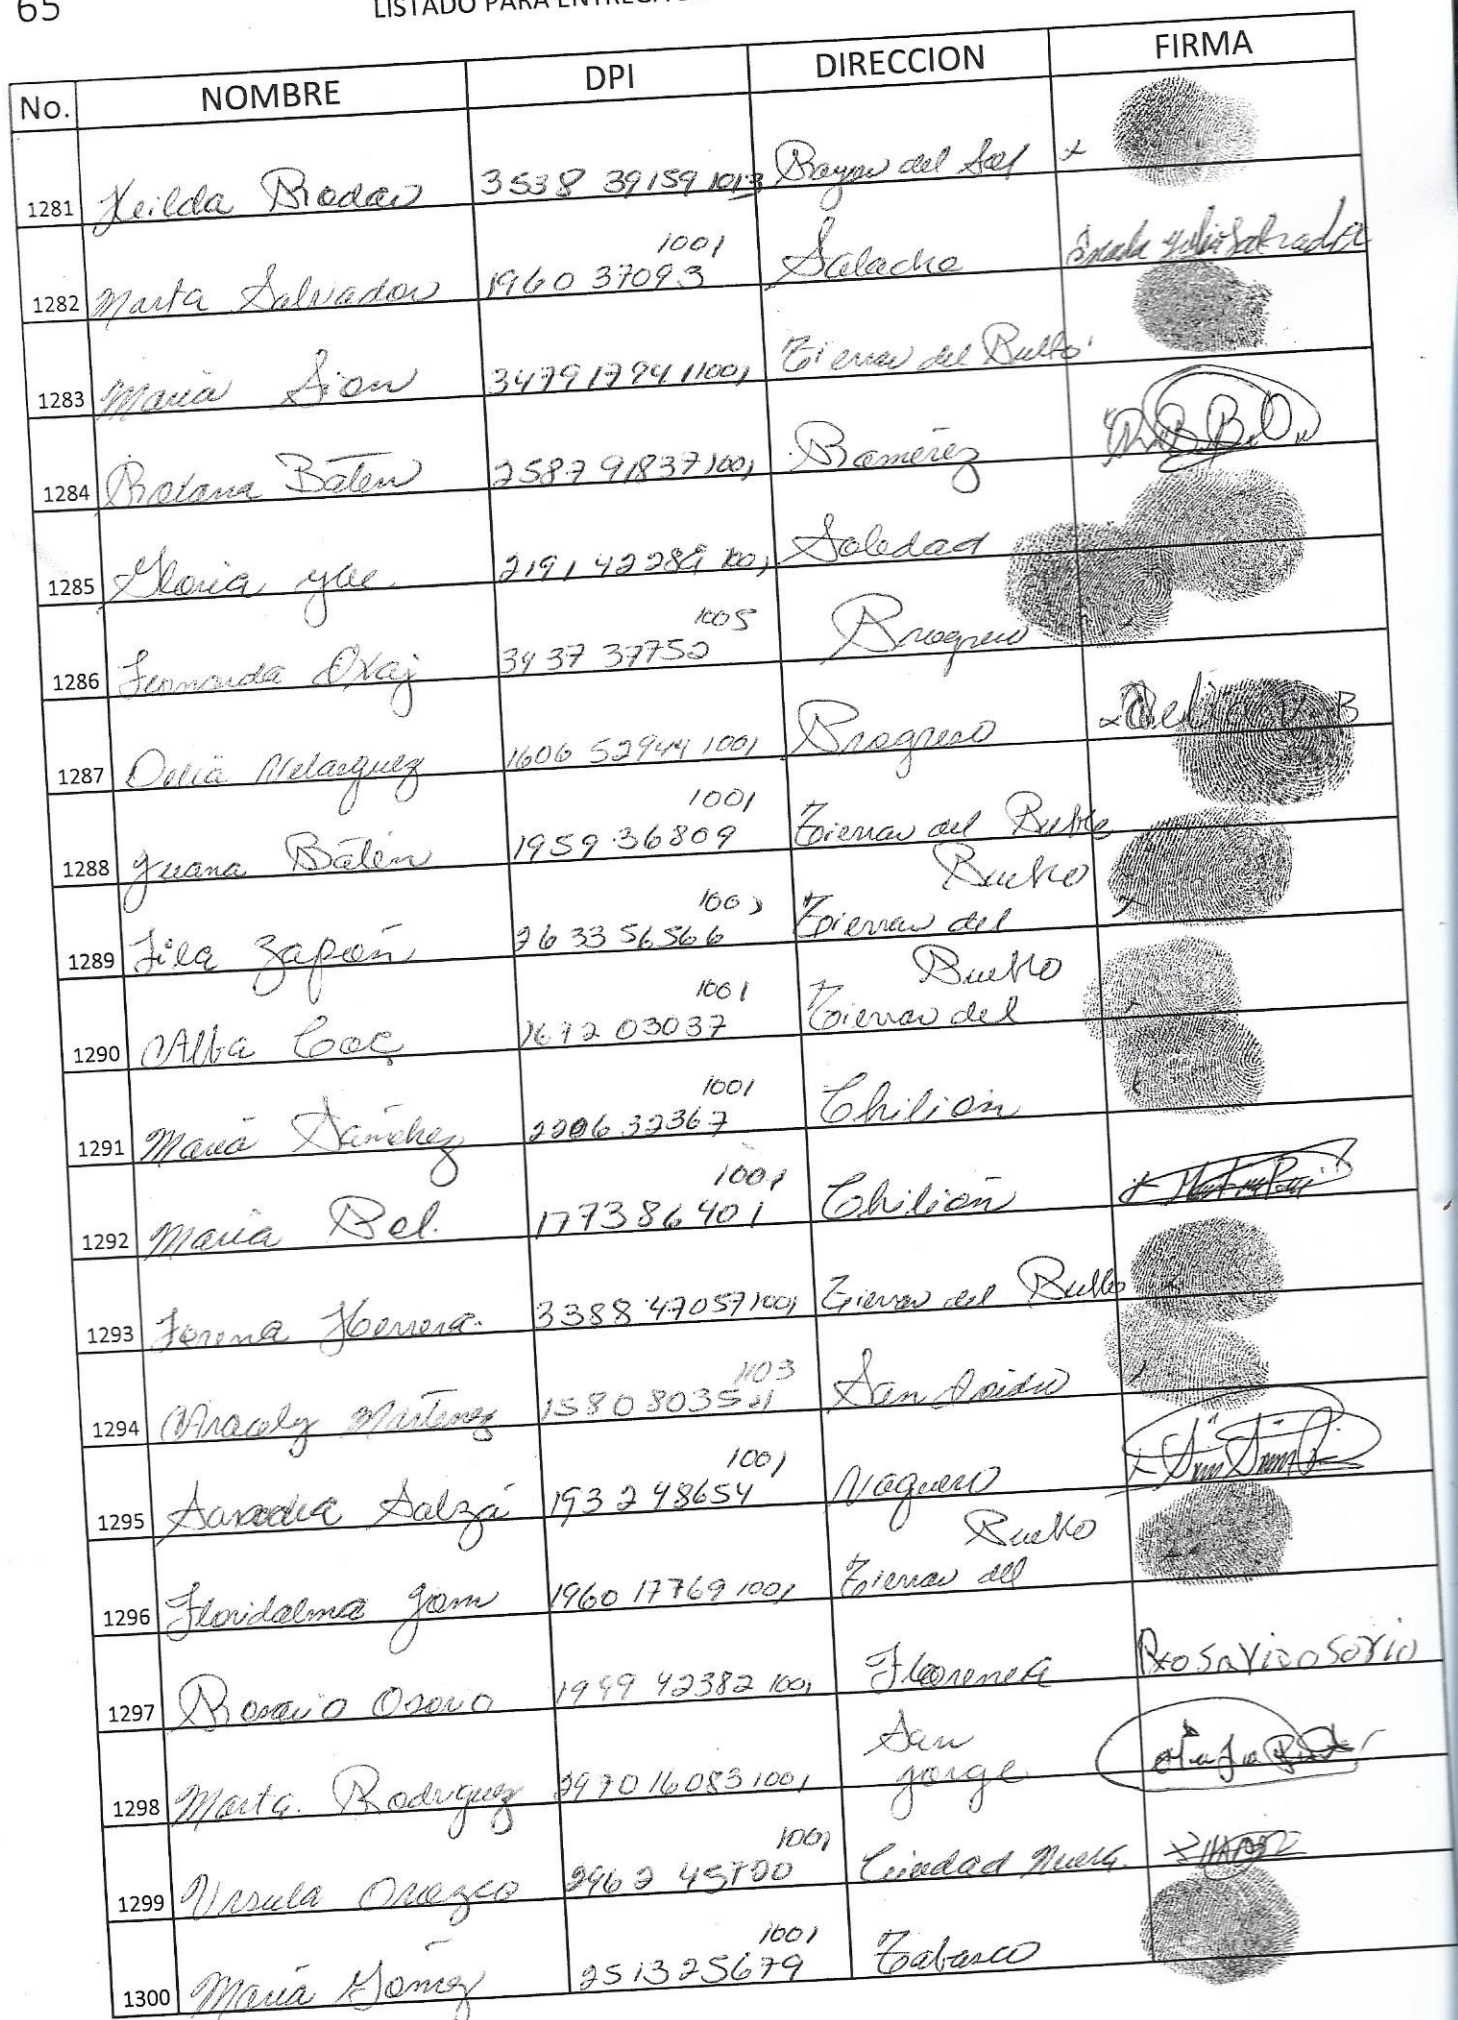 65
LISTADO PARA ENTREGA
No. NOMBRE DPI DIRECCION FIRMA
1281 Heilda Rodas 3538 39159 1013 Rayos del Sol x
1282 Marta Salvador 1960 37093 1001 Salache
1283 Maria Sion 3479 17941 1001 Tierras del Pueblo
1284 Roxana Batén 2587 91837 1001 Ramérez
1285 Gloria yac 2191 42289 1001 Soledad
1286 Fernanda Oxaj 3437 37752 1005 Progreso
1287 Delia Velasquez 1606 52944 1001 Progreso
1288 Juana Batén 1959 36809 1001 Tierras del Pueblo
1289 Zapón 2633 56566 Tierras del Pueblo
1290 Alba Coc 1672 03037 1001 Tierras del Pueblo
1291 Maria Sánchez 2206 32367 1001 Chilión
1292 Maria Bel. 1773 86401 1001 Chilión
1293 Herrera. 3388 47057 1001 Tierras del Pueblo
1294 Aracely Martinez 1580 1103 San Isidro
1295 Salzá 1932 48654 1001
1296 Floridalma Jom 1960 17769 1001 Tierras del Pueblo
1297 Rosario Osorio 1999 42382 1001 Florencia
1298 Marta. Rodriguez 2970 16083 1001 San Jorge
1299 Ursula Orozco 2962 45720 1001 Ciudad Nueva.
1300 Maria Gómez 2513 25679 1001 Tabasco